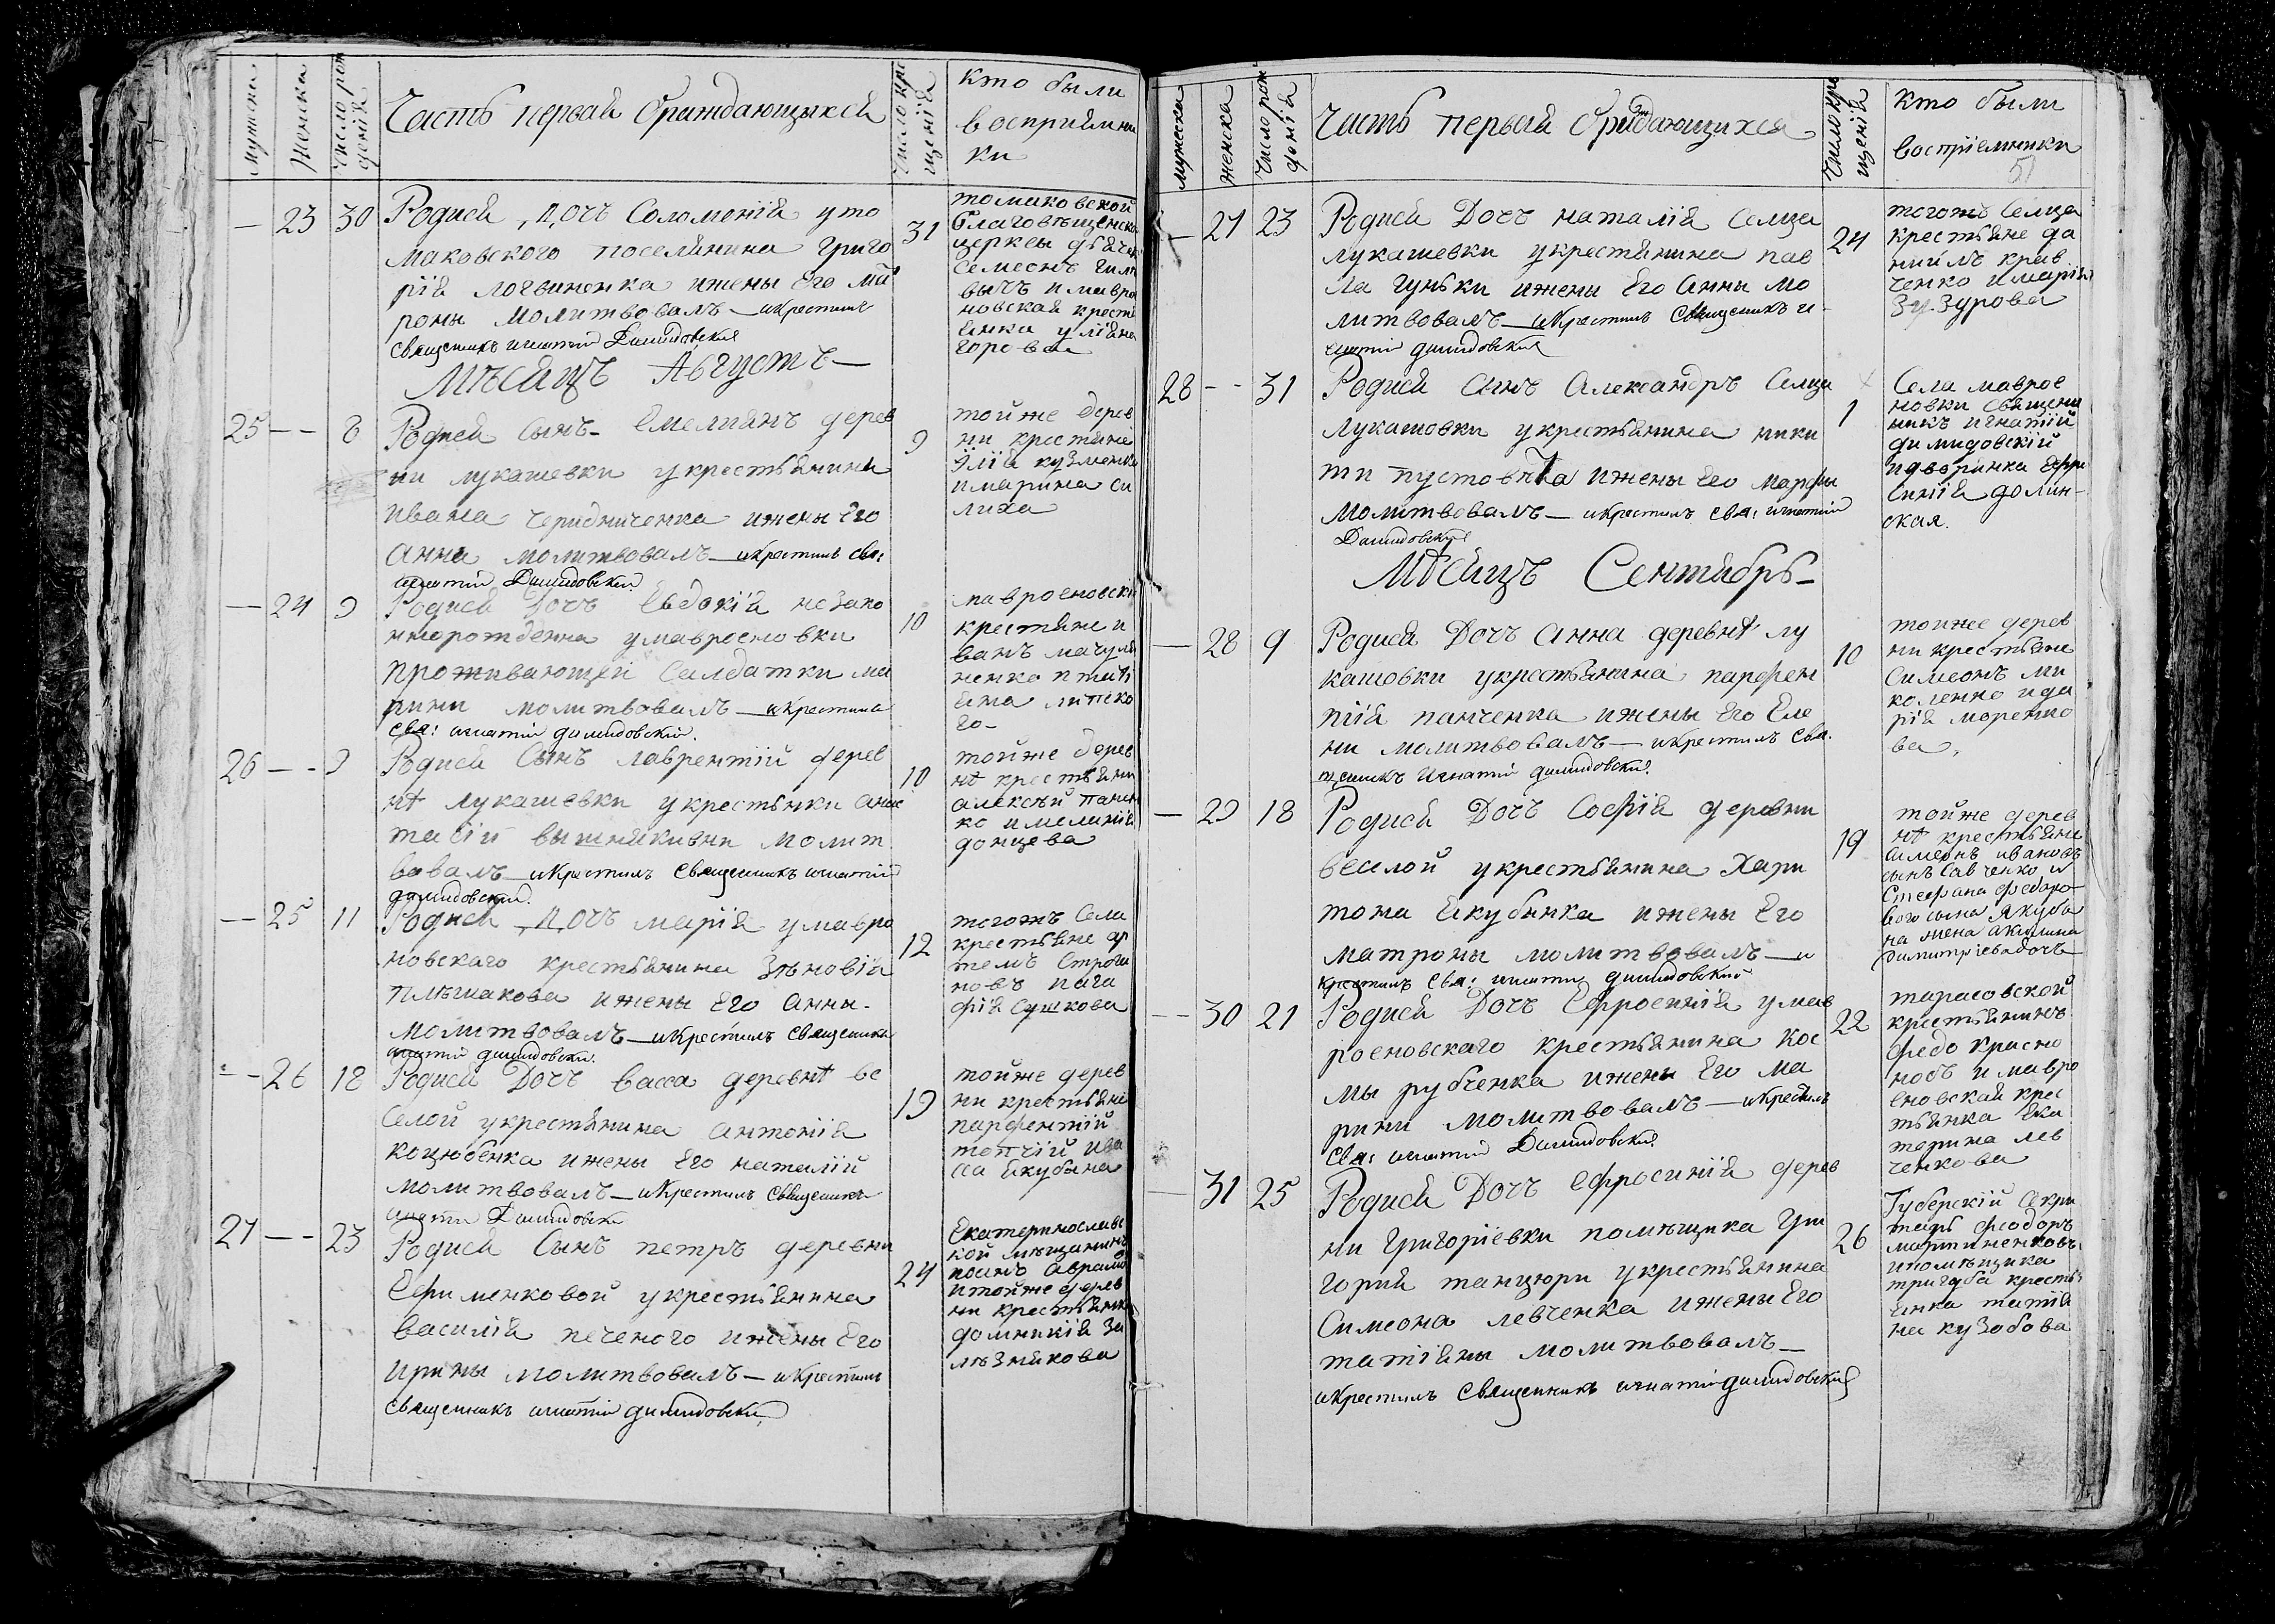 мужеска
Женска
Число рож
денія
Часть первая Ораждающыхся
Число кре
щенія
Кто были
воспріймни
ки
— 23 30
Родися Дочъ Соломонія у то
маковского поселянина Григо
рія логвиненка ижены Его ма
роны молитвовалъ — икрестилъ
Священикъ игнатій Димидовскій
31
томаковской
Благовѣщенско
церквы дьяче
Семеонъ
вычъ имавро
новская крестя
янка уліяна
горова
Мѣсяцъ Августъ —
25 — — 8
Родися Сынъ Емелиянъ дерев
ни лукашевки укрестьянина
ивана чередниченка ижены Его
Анны молитвовалъ — икрестилъ свя:
игнатій Димидовскій
9
тойже дерев
ни крестяне
Ілія кузменко
имарина си
лиха
— 24 9
Родися Дочъ Евдокія незако
норожденна умавроеновки
проживающей Салдатки ма
рины молитвовалъ — икрестилъ
свя: игнатій димидовскій.
10
мавроеновскі
крестяне и
ванъ мачуля
ненко итаті
яна литвко
го —
26 — — 9
Родися Сынъ лаврентій дерев
нѣ лукашевки укрестьянки анас
тасіи вышнякивни молит
вовалъ — икрестилъ Священикъ игнатій
димидовскій.
10
тойже дерев
нѣ крестьяни
алексѣй панчен
ко имеланія
донцева
— 25 11
Родися Дочъ марія умавро
новскаго крестьянина Зѣновія
плѣшакова ижены Его анны
молитвовалъ — икрестилъ Священикъ
игнатій димидовскій.
12
тогожъ Села
крестьяне ар
темъ Строга
новъ иага
фія Сушкова
— 26 18
Родися Дочъ васса деревнѣ ве
Селой укрестянина антонія
коцюбенка ижены Его наталіи
молитвовалъ — икрестилъ Священикъ
игнатій Димидовскій
19
тойже дерев
ни крестьяне
парфентій
топчій ива
са Якубына
27 — — 23
Родися Сынъ петръ деревни
Ефименковой укрестьянина
василія печеного ижены Его
ирины молитвовалъ — икрестилъ
Священикъ игнатій димидовскій
24
Екатеринославс
кой мѣщанинъ
иоанъ аврамо
итойже дерев
ни крестьянк
домникія За
лѣзнякова
мужеска
женска
Число рож
денія
Часть первая Ораждающихся
Число кре
щенія
Кто были
воспріемники
51
— 27 23
Родися Дочъ наталія Селца
лукашевки укрестянина пав
ла гуньки ижены Его Анны мо
литвовалъ — икрестилъ Священикъ и
гнатій димидовскій
24
тогожъ Селца
крестьяне да
ниилъ крав
ченко имарія
Зузурова
28 — — 31
Родися Сынъ Александръ Селца
лукашовки укрестьянина ники
ты пустовита ижены Его марфы
молитвовалъ — икрестилъ свя: игнатій
Димидовскій
1
Села маврое
новки Священи
никъ игнатій
димидовскій
идворянка Ефро
Синія долин-
ская.
Мѣсяцъ Сентябрь —
— 28 9
Родися Дочъ Анна деревнѣ лу
кашовки укрестьянина парфен
тія панченка ижены Его Еле
ны молитвовалъ — икрестилъ Свя
щеникъ Игнатій димидовскій.
10
тойже дерев
ни крестьяне
Симеонъ ми
коленко ида
рія моренко
ва.
— 29 18
Родися Дочъ Софія деревни
веселой укрестьянина Хари
тона Якубынка ижены Его
матроны молитвовалъ — и
крестилъ Свя: игнатій димидовскій
19
тойже дерев
нѣ крестьяне
Симеонъ ивановъ
сынъ Савченко и
Стефана федоро
вого сына Якуба
на жена акилина
димитріева дочъ
— 30 21
Родися Дочъ Ефросинія умав
роеновскаго крестьянина Кос
мы рубченка ижены Его ма
рины молитвовалъ — икрестилъ
Свя: игнатій Димидовскій
22
тарасовской
крестьянинъ
федо красно
нобъ имавро
еновская крес
тьянка Ека
терина лев
ченкова
— 31 25
Родися Дочъ Ефросинія дерев
ни Григоріевки помѣщика Гри
горія танцюри укрестьянина
Симеона левченка ижены Его
татіяны молитвовалъ —
икрестилъ Священникъ игнатій димидовскій
26
Губерскій Секри
таръ феодоръ
мартиненковъ
ипомѣщика
тригуба кресть
янка татія
на кузобова